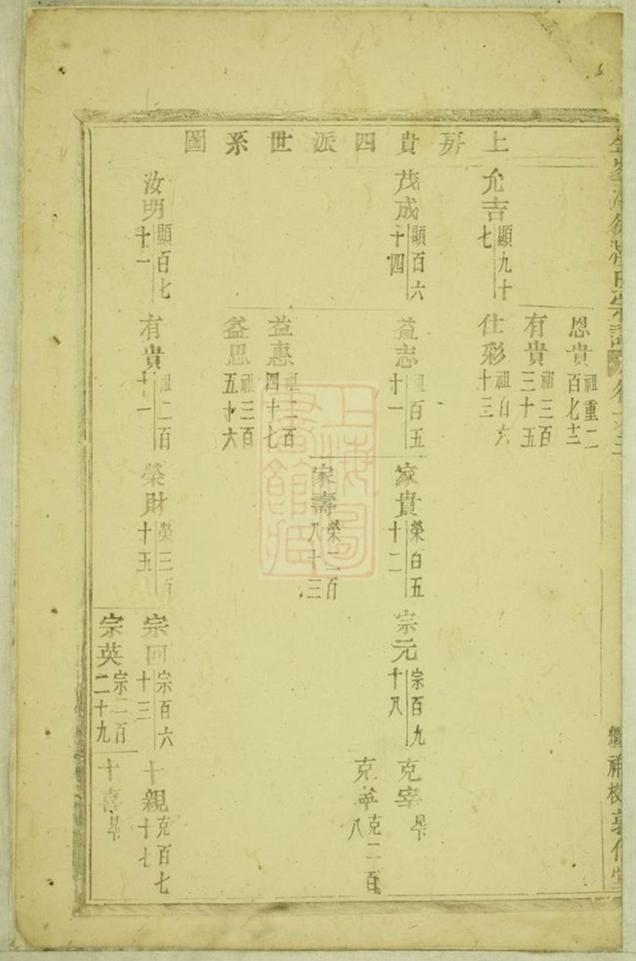 上房貴四派世系圖
恩貴 祖重二百七十二
有貴 祖三百三十五
允吉 顯九十七
仕彩 祖百六十三
茂成 顯百六十四
益志 祖百五十一
家貴 榮百五十二
宗元 宗百九十八
克宰 早
克 克二百八
家壽 榮二百八十三
益惠 祖二百四十七
益思 祖三百五十六
汝明 顯百七十一
有貴 祖二百十一
榮財 榮三百十五
宗回 宗百六十三
十親 克百七十七
宗英 宗二百二十九
十喜 早
上海圖書館藏